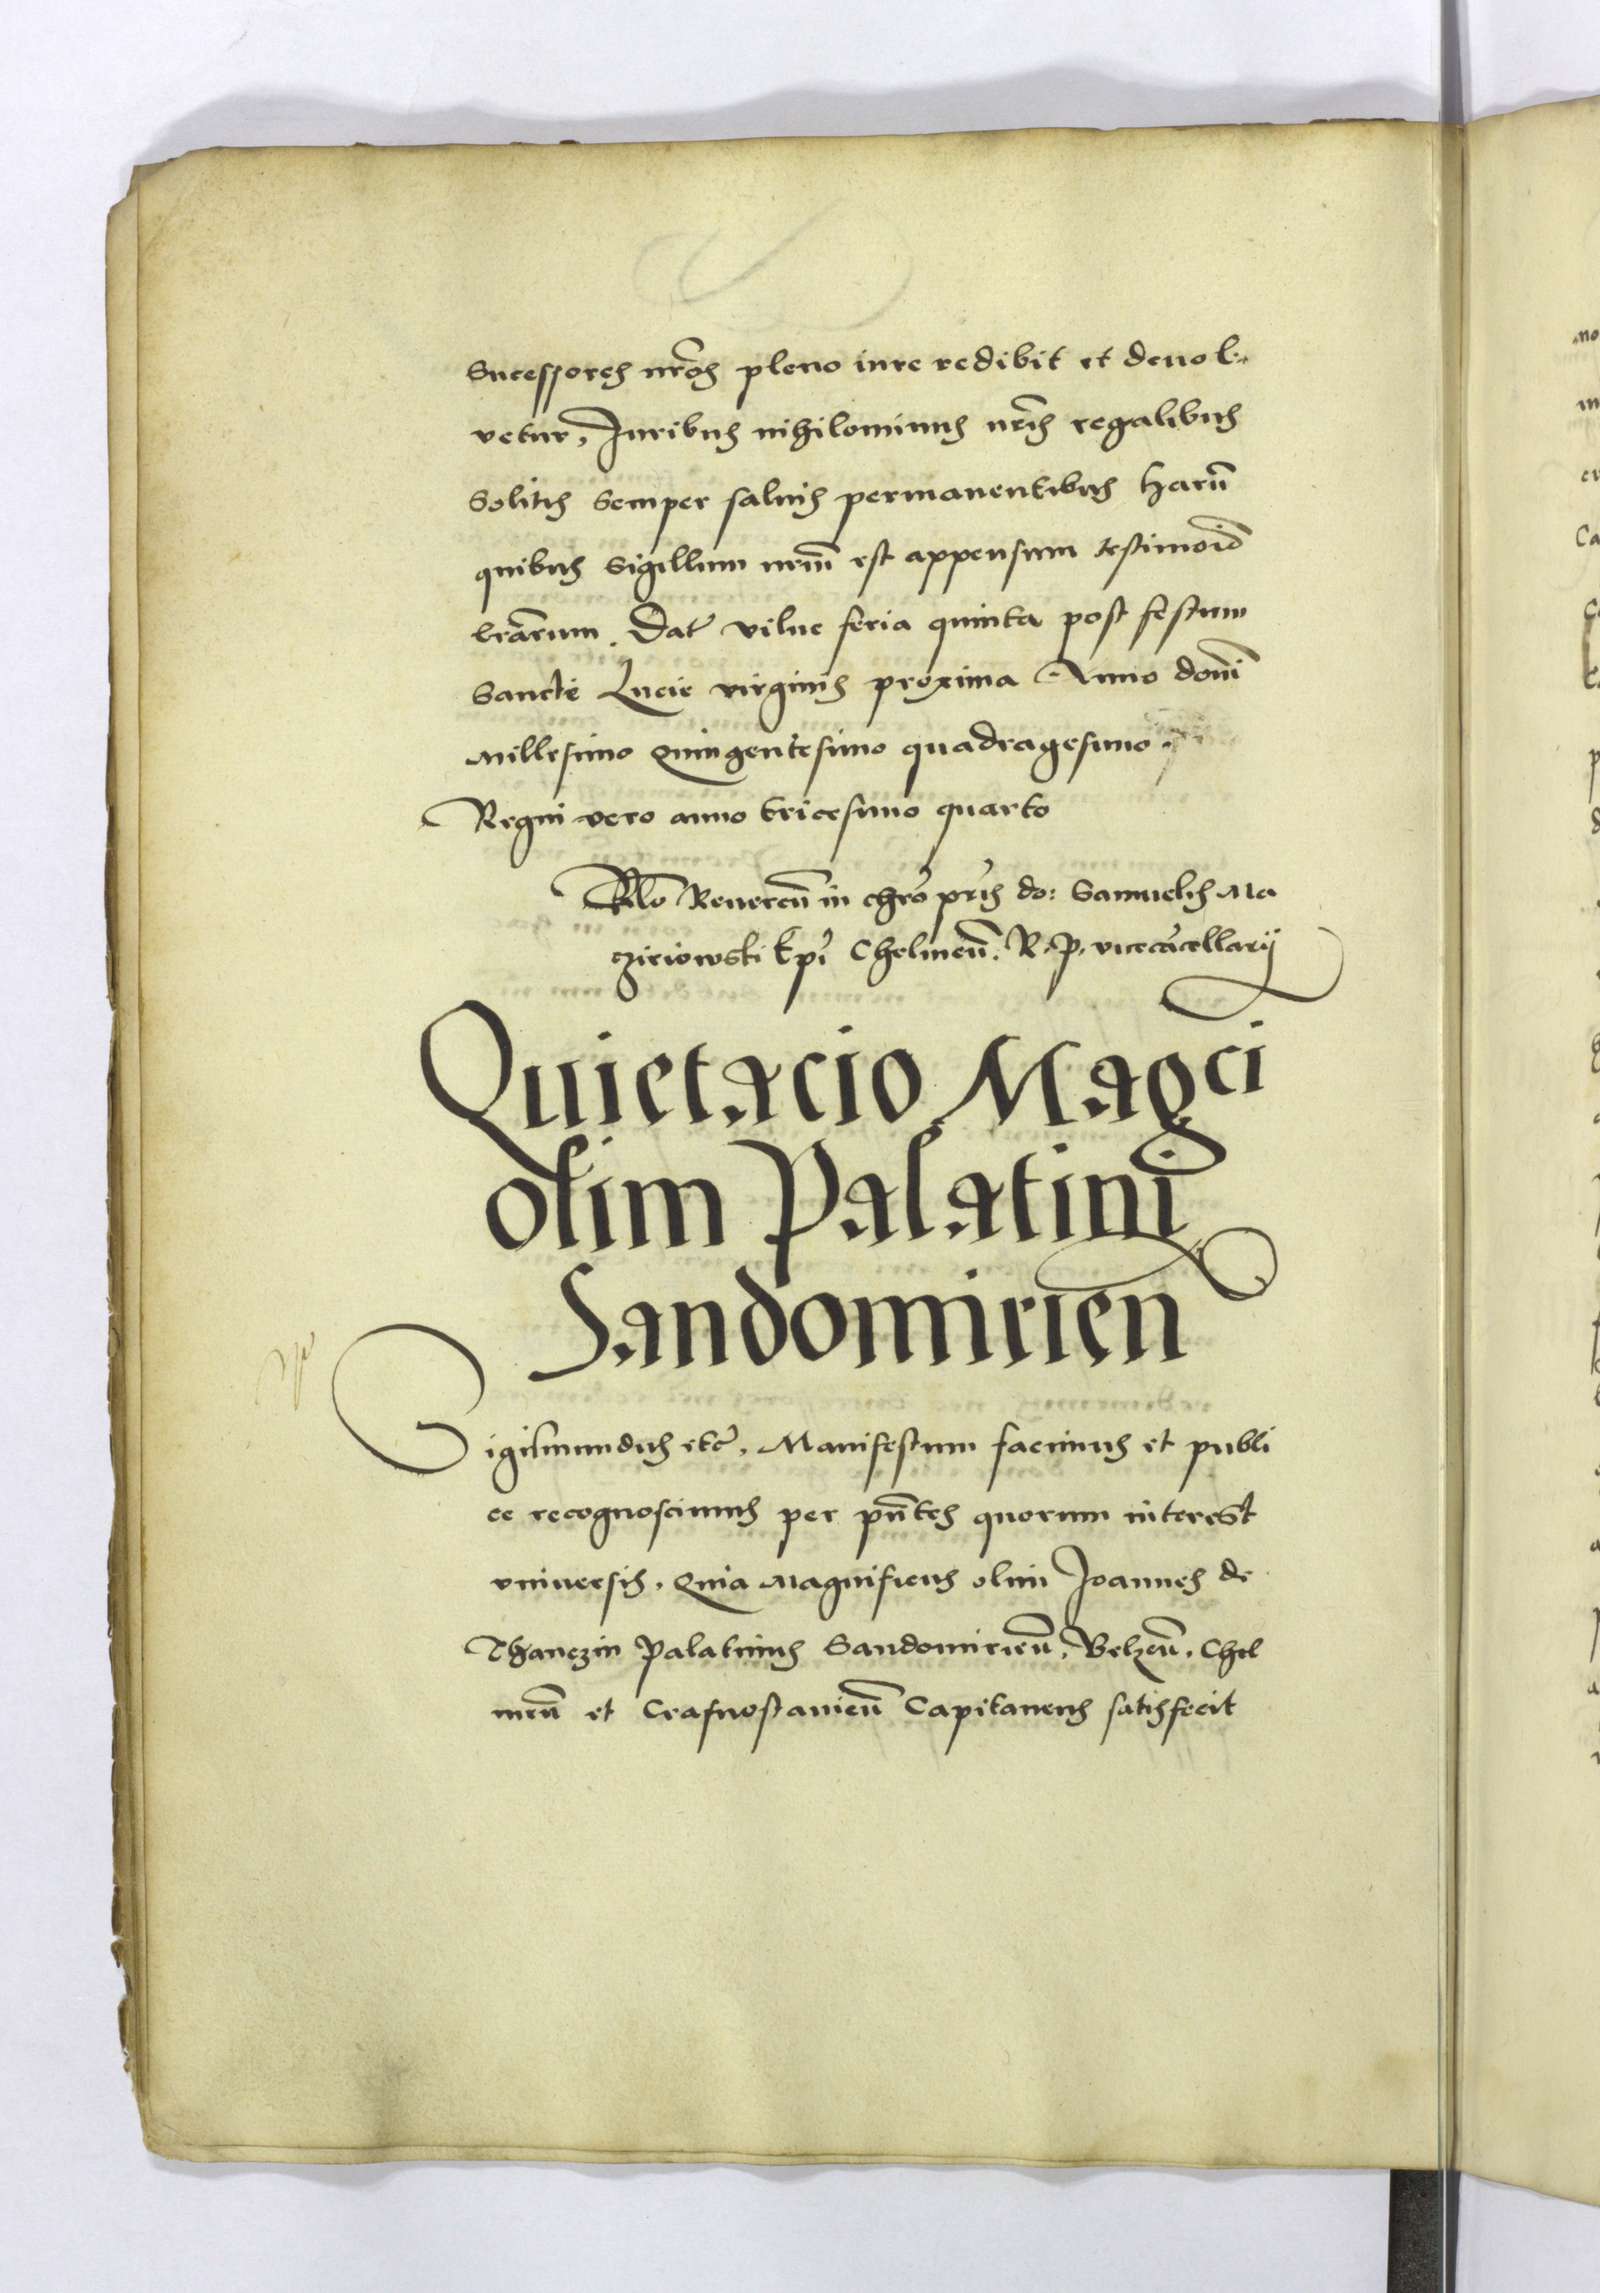 Sucessores nros pleno iure redibit et deuol-
vetur, Juribus nihilominus nris regalibus
Solitis Semper saluis permanentibus Harũ
quibus Sigillum nrum est appensum testimoio
lrarum. Dat vilne feria quinta post festum
Sancte Lucie virginis proxima Anno domi
Millesimo Quingentesimo quadragesimo.
Regni vero anno tricesimo quarto
Rlo Reueren in chro pris do: Samuelis Ma
czieiowski Epi Chelmen. R. P. vicecancellarij
Quietacio Magci
olim Palatini
Sandomirien
Sigismundus etc. Manifestum facimus et publi
ce recognoscimus per pntes quorum interest
vniuersis. Quia Magnificus olim Joannes de
Thanczin Palatinus Sandomirien, Belzen, Chel
men et Crasnostauien Capitaneus satisfecit